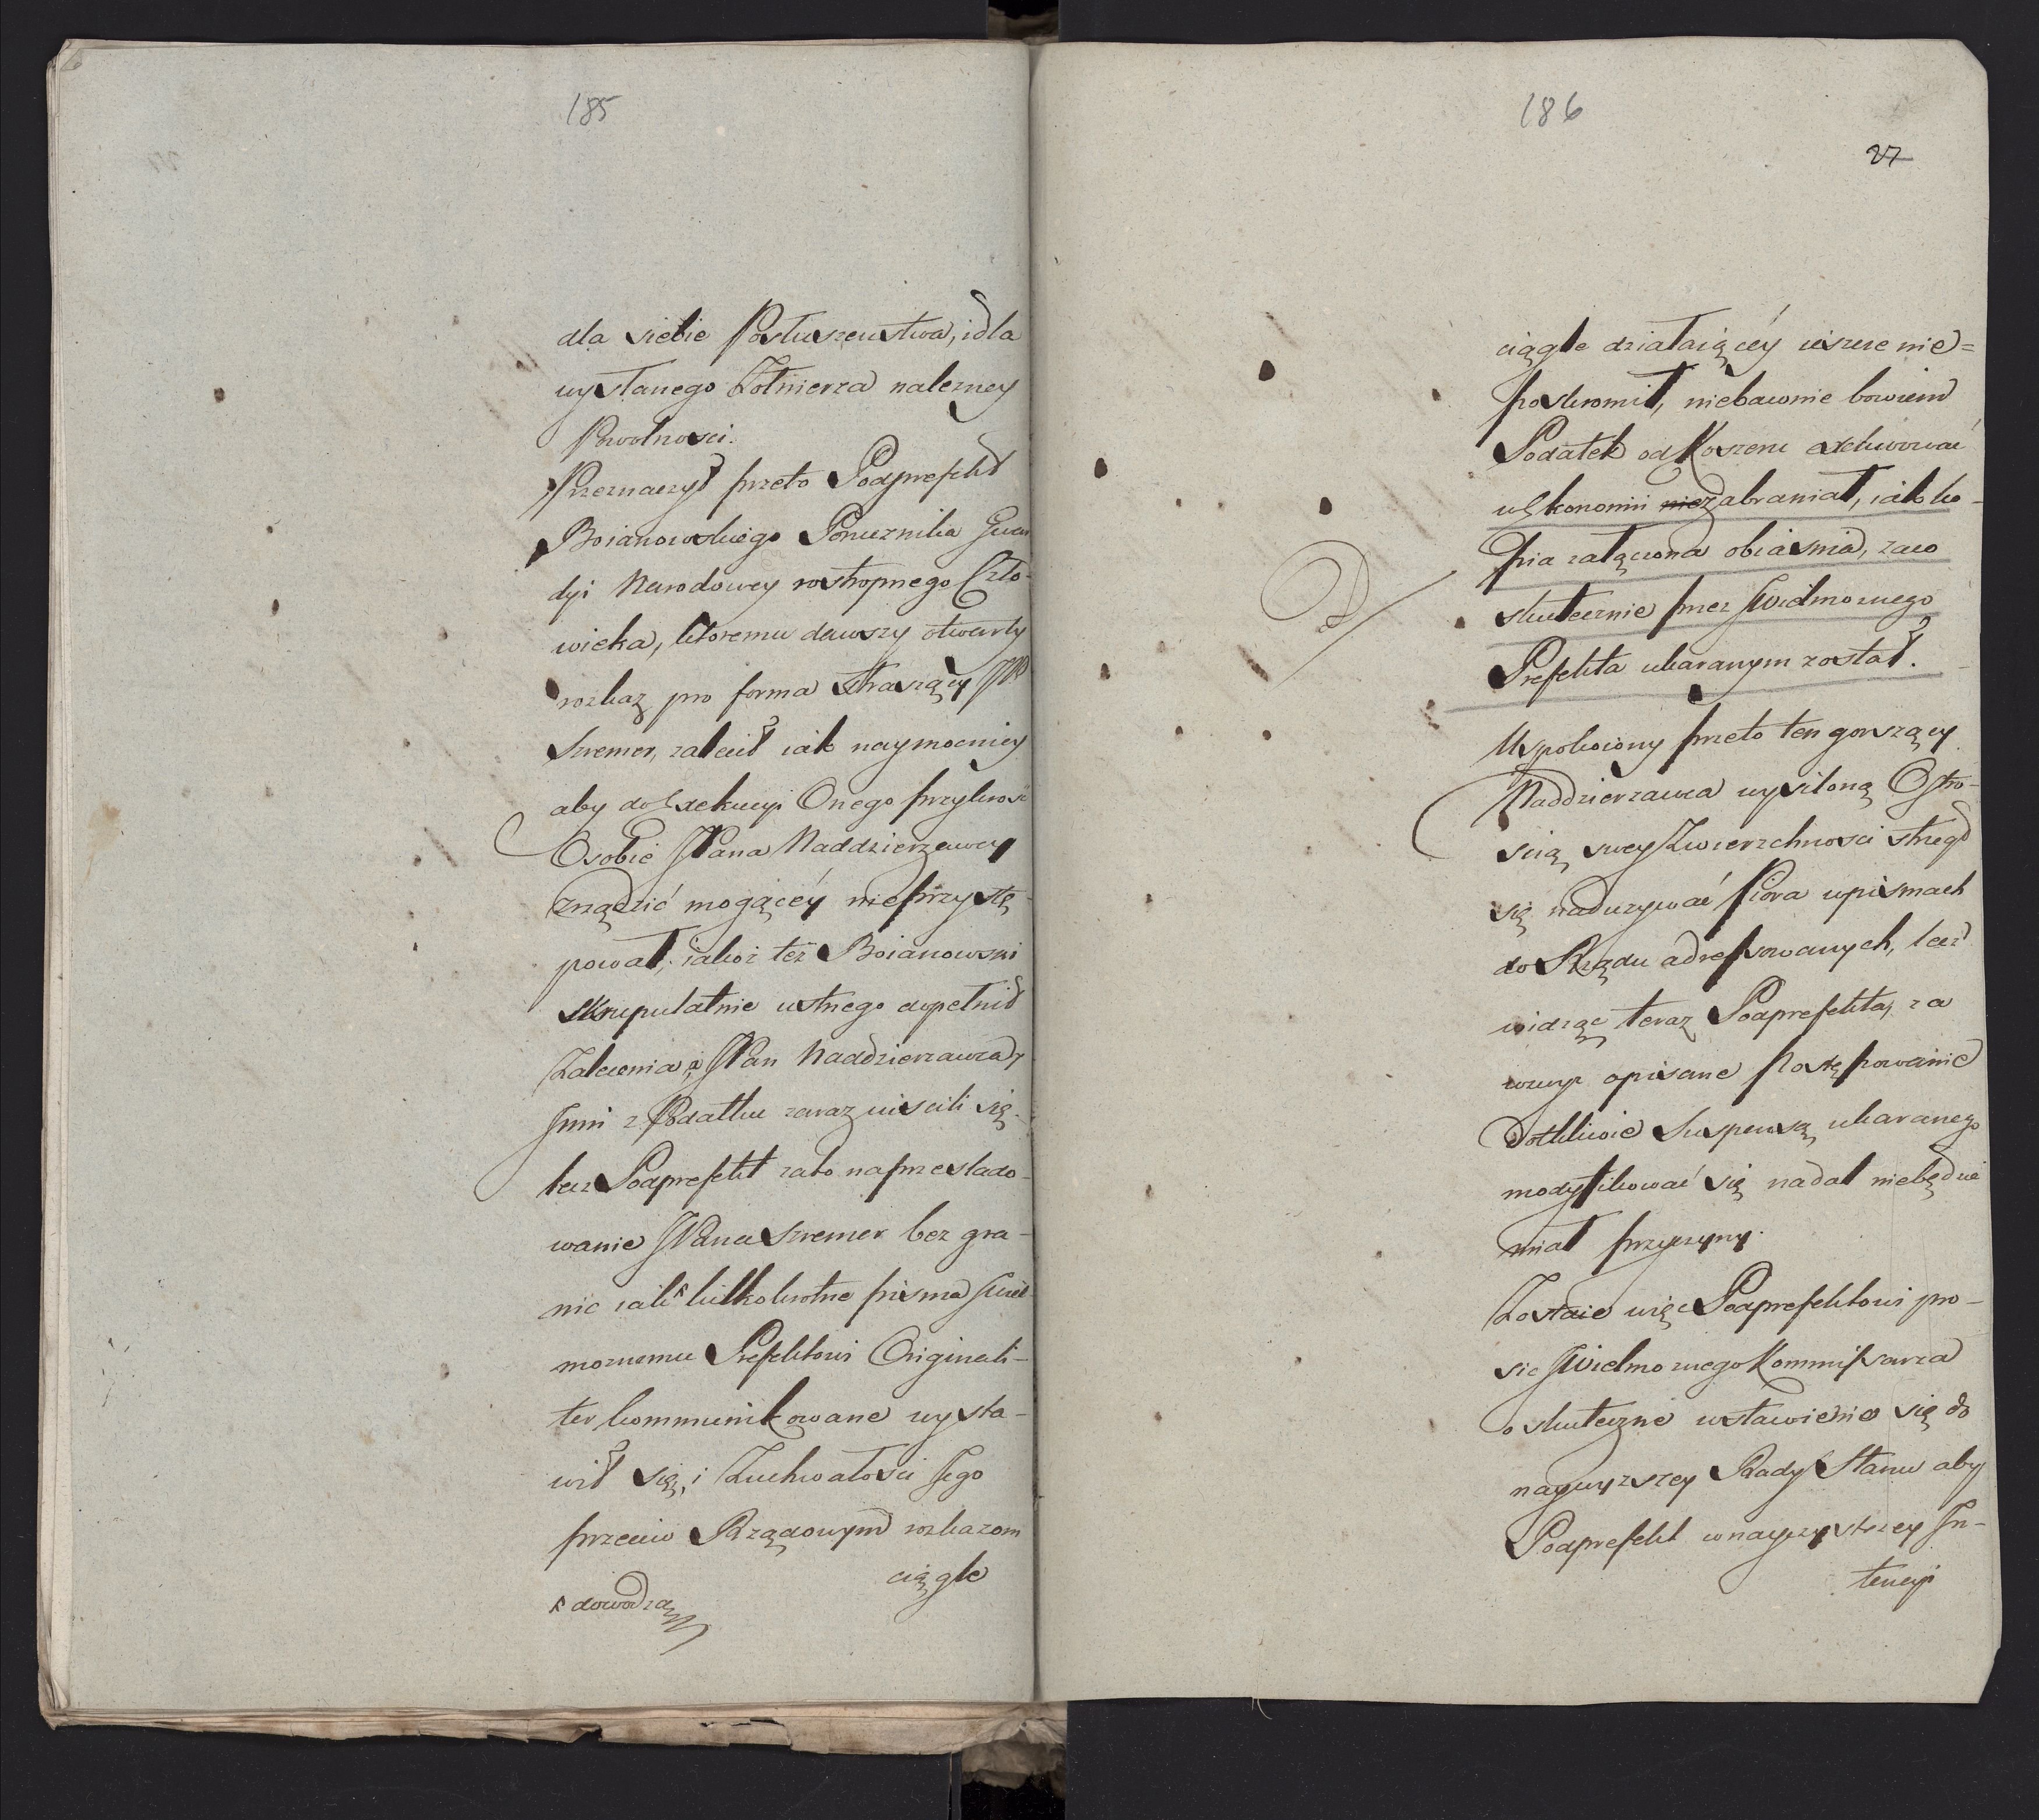 185
dla siebie Posłuszeństwa, i dla
wysłanego Żołnierza należney
Powolności.
Przeznaczył przeto Podprefekt
Boianowskiego Porucznika Gwar
dyi Narodowey rostropnego Czło-
wieka, któremu dawszy otwarty
rozkaz pro forma straszący JP
Szremer, zalecił iak naymocniey
aby do Exekucyi Onego przykrość
Osobie JPana Naddzierzawcy
rządzić mogącéy nieprzystę-
pował, iakoż też Boianowski
skrupulatnie ustnego dopełnił
Zalecenia, a JPan Naddzierzawca y
Inni z Podatku zaraz uiscili się.
lecz Podprefekt zato na przeslado-
wanie JPana Szremer bez gra-
nic iak kilkokrotne pisma JWiel
możnemu Prefektowi Originali-
ter kommunikowane wysta-
wił się, i Zuchwałości Jego
przeciw Rządowym rozkazom
ciągle
dowodzą
186
27
ciągle działaiącéy ieszcze nie=
poskromił, niebawnie bowiem
Podatek od Koszeru exekwować
w Ekonomii nie zabraniał, iak ko-
pia załączona obiaśnia, zaco
skutecznie przez JWielmoznego
Prefekta ukaranym został.
Uspokoiony przeto ten gorszący
Naddzierzawca wysiloną Ostro-
ścią swey Zwierzchności strzegł
się naduzywać Piora w pismach
do Rządu adressowanych, lecz
widząc teraz Podprefekta, za
wczyi opisane Postępowanie
Dotkliwie Suspensą ukaranego
modyfikować się nadal niebędzie
miał przyczyny.
Zostaie więc Podprefektowi pro-
sić JWielmoznego Kommissarza
o skuteczne wstawienie się do
naywyzszey Rady Stanu aby
Podprefekt w nayczystszey In-
tencyi